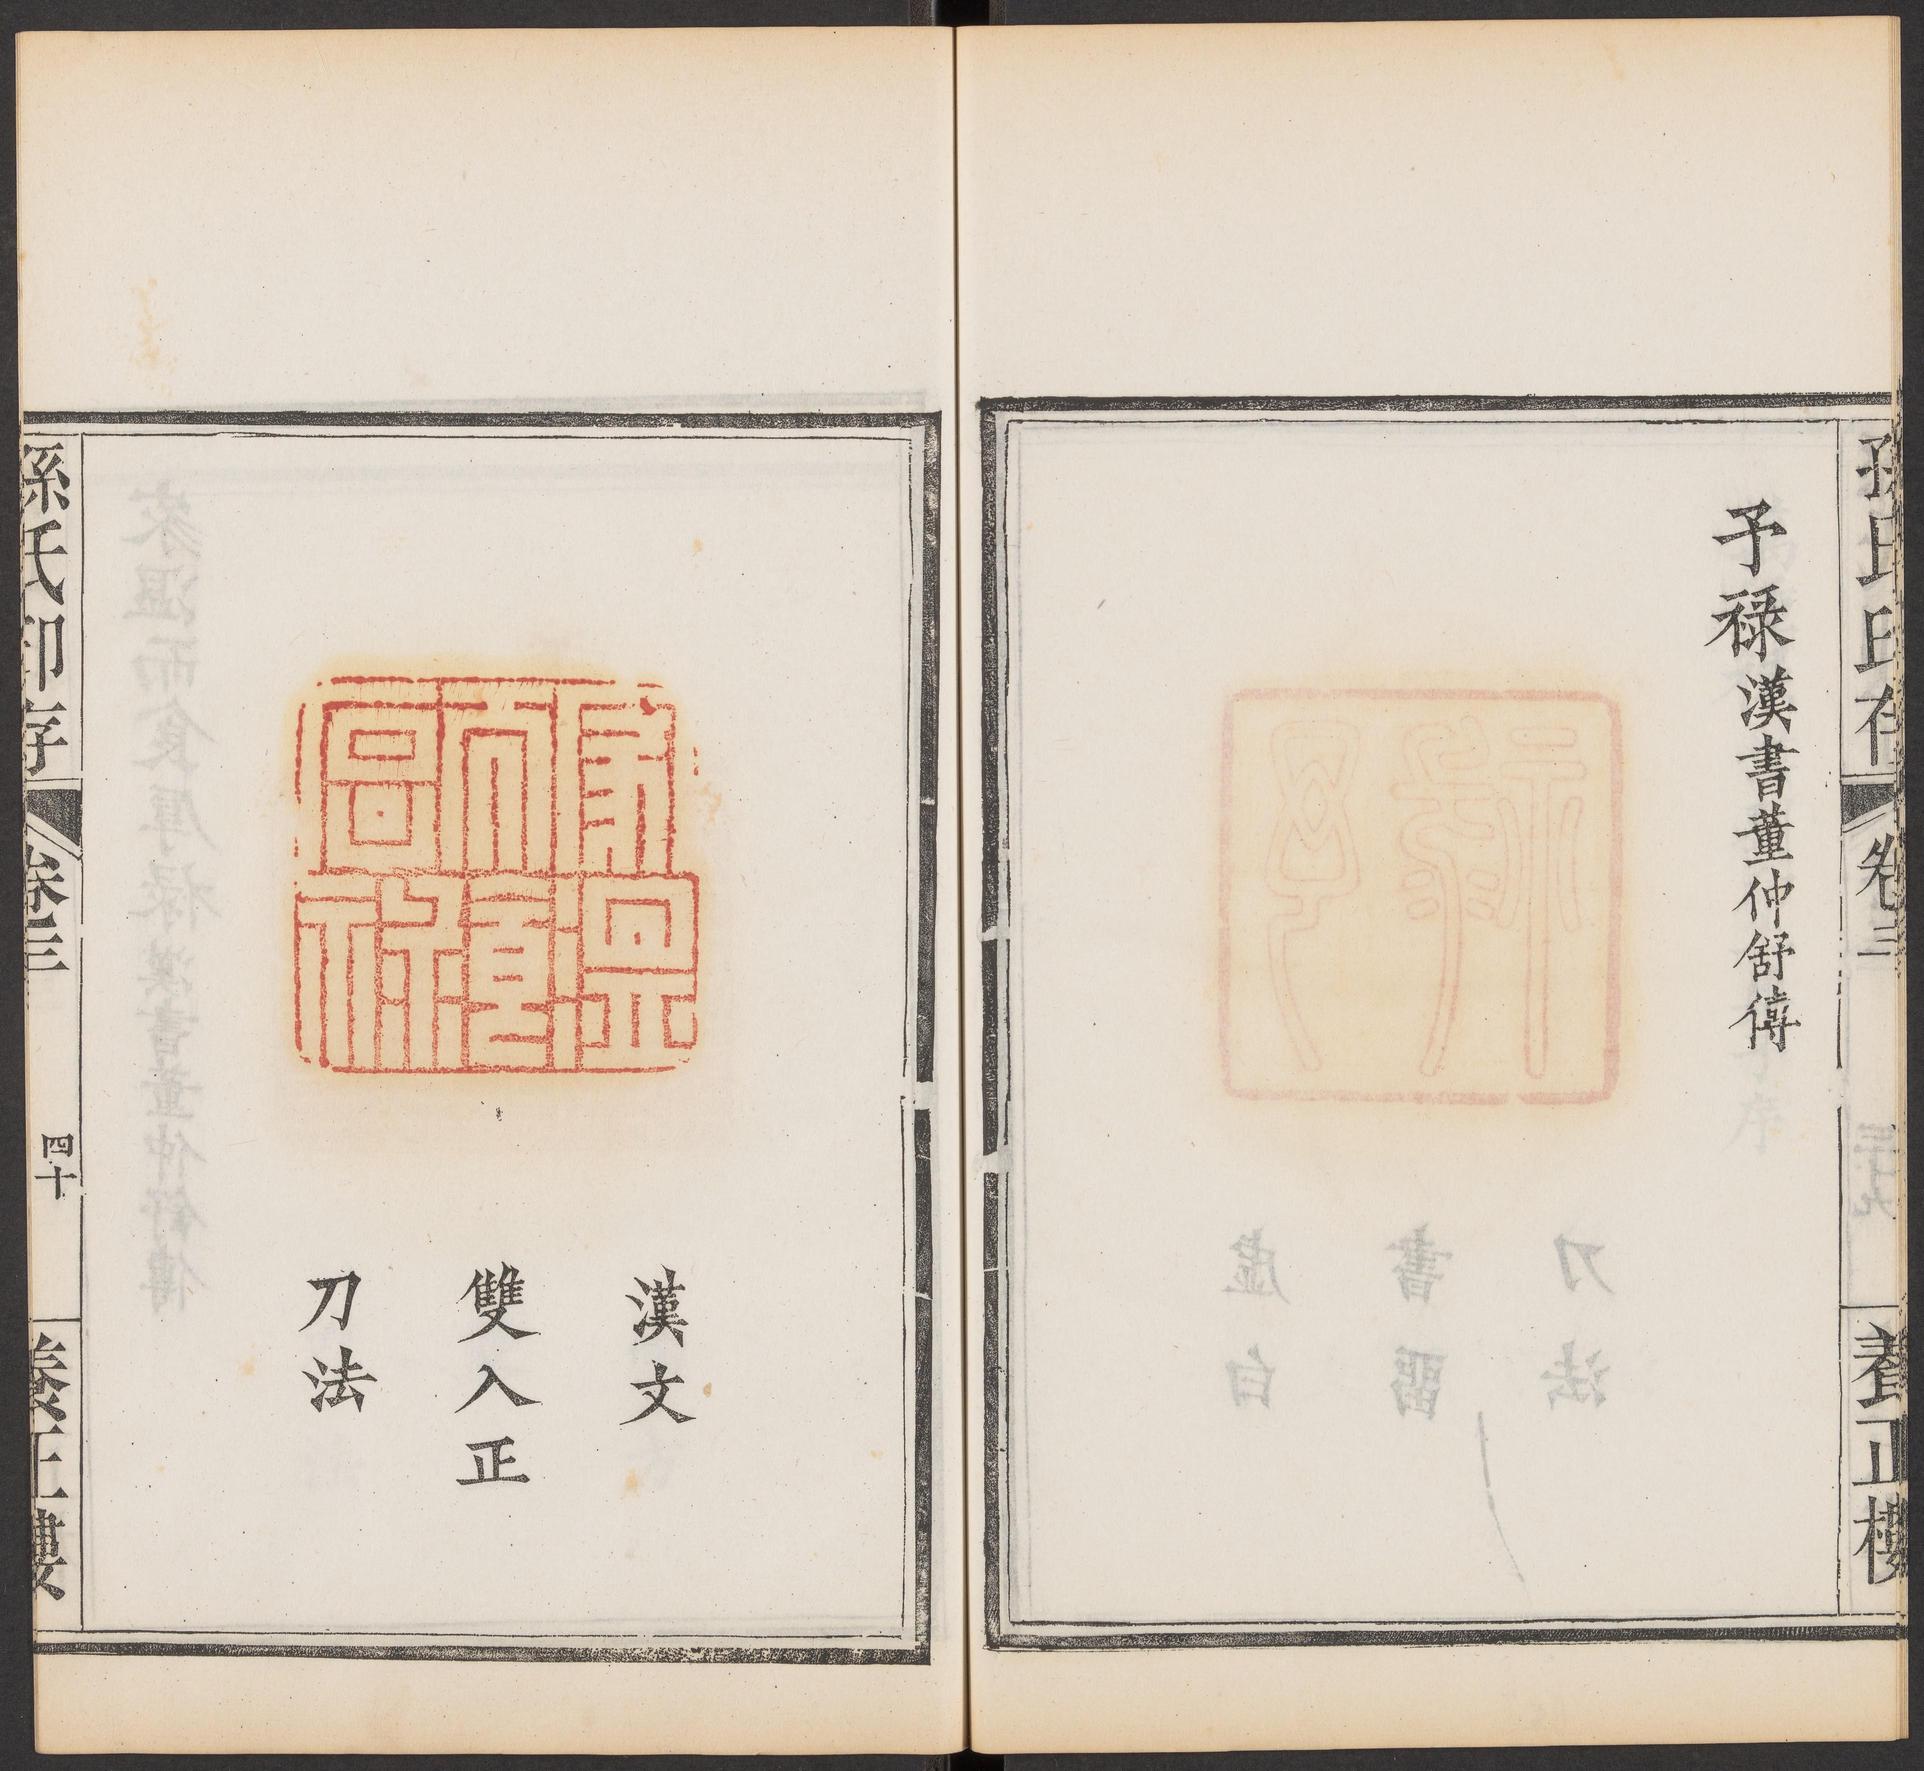 孫氏印存 卷三 養正樓
予祿漢書董仲舒傳
家溫
而食
厚祿
漢文
雙入正
刀法
孫氏印存 卷三 四十 養正樓